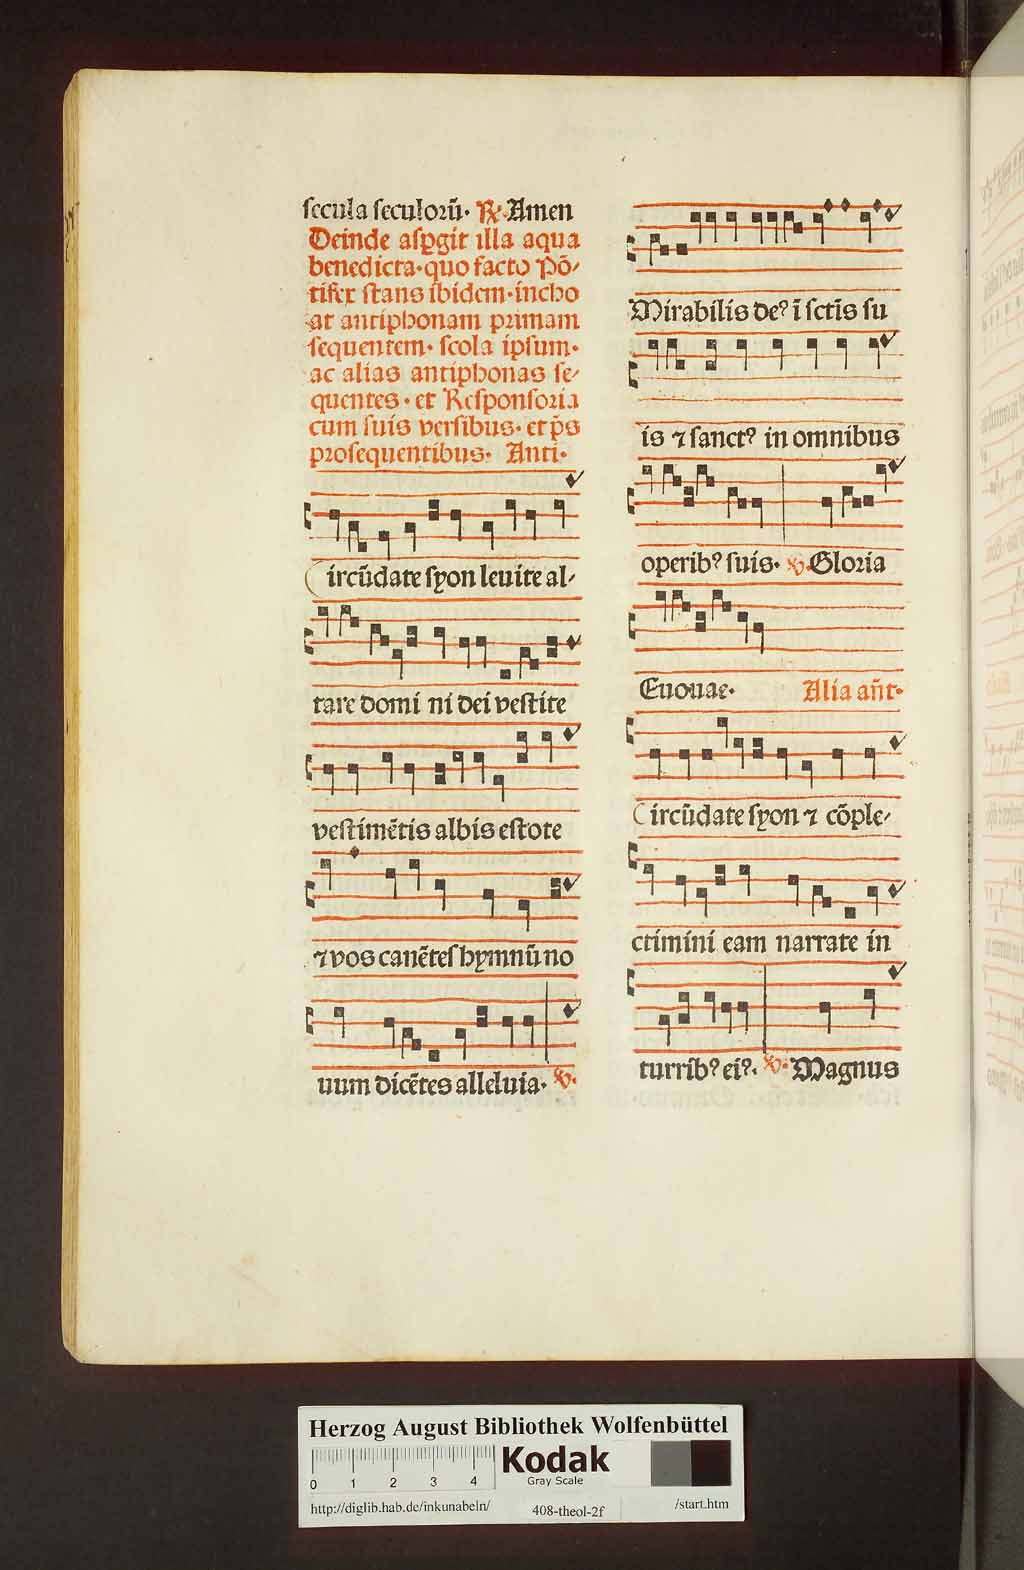 secula seculoꝝ̄. ℟. Amen
Deinde asꝑgit illa aqua
benedicta. quo facto Põ-
tifex stans ibidem. incho
at antiphonam primam
sequentem. scola ipsum.
ac alias antiphonas se-
quentes. et Responsoria
cum suis versibus. et p̃s
prosequentibus. Anti.
Circũdate syon leuite al-
tare domi ni dei vestite
vestimẽtis albis estote
⁊ vos canẽtes hymnũ no
uum dicẽtes alleluia. ℣.
Mirabilis deꝰ ĩ sctĩs su
is ⁊ sanctꝰ in omnibus
operibꝰ suis. ℣. Gloria
Euouae. Alia añt.
Circũdate syon ⁊ cõple-
ctimini eam narrate in
turribꝰ eiꝰ. ℣. Magnus
Herzog August Bibliothek Wolfenbüttel
0 1 2 3 4
Kodak
Gray Scale
http://diglib.hab.de/inkunabeln/ 408-theol-2f /start.htm